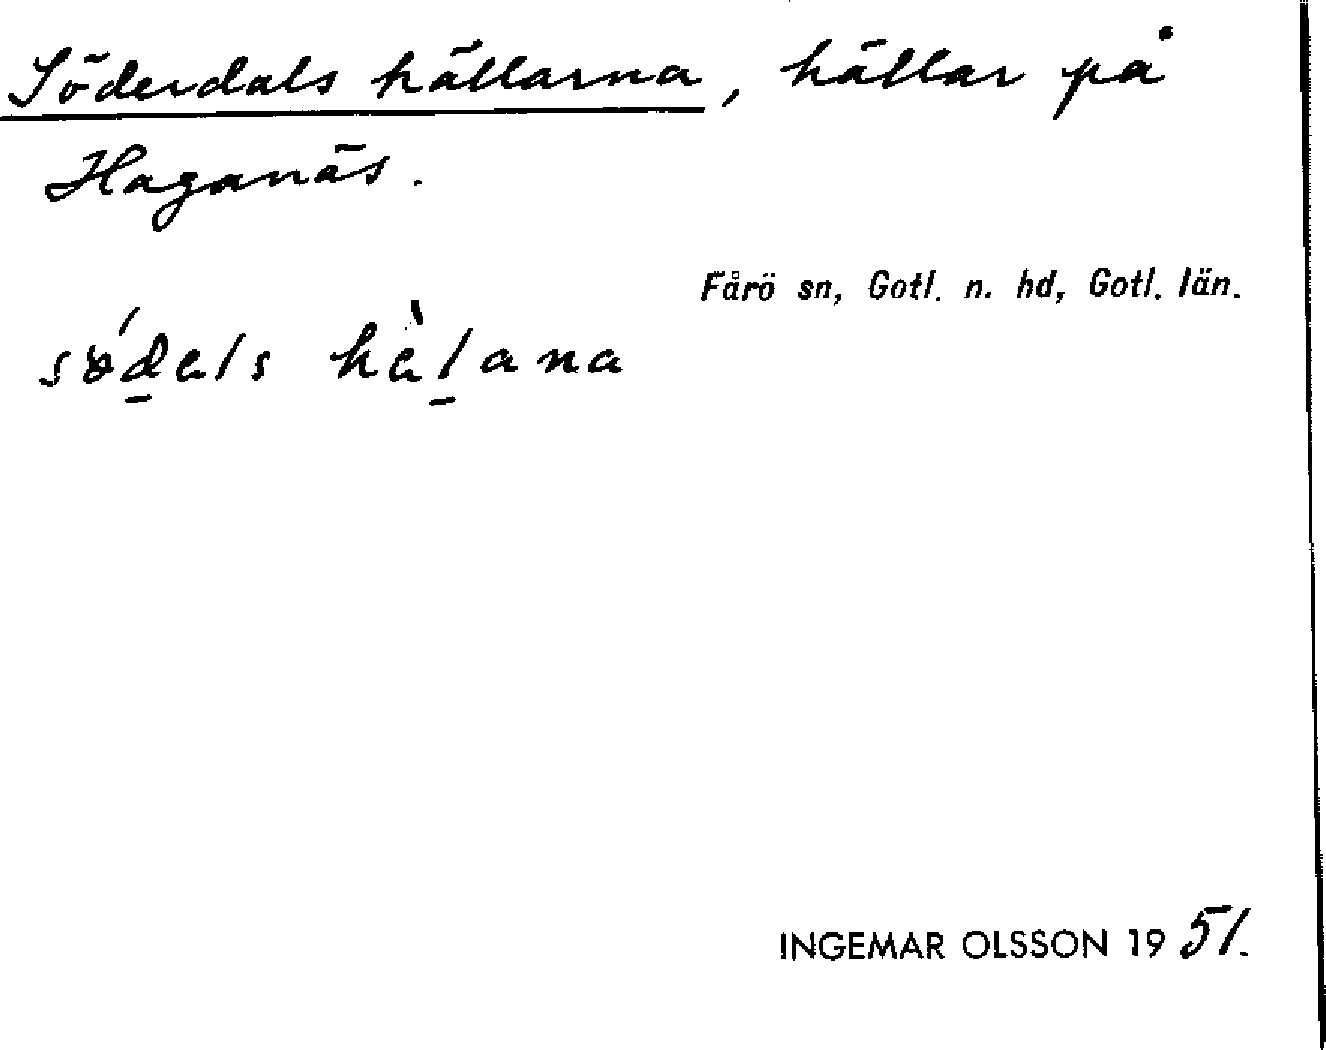 Söderdals hällarna, hällar på
Haganäs.
Fårö sn, Gotl. n. hd, Gotl. län.
södals hàlana
INGEMAR OLSSON 1951.